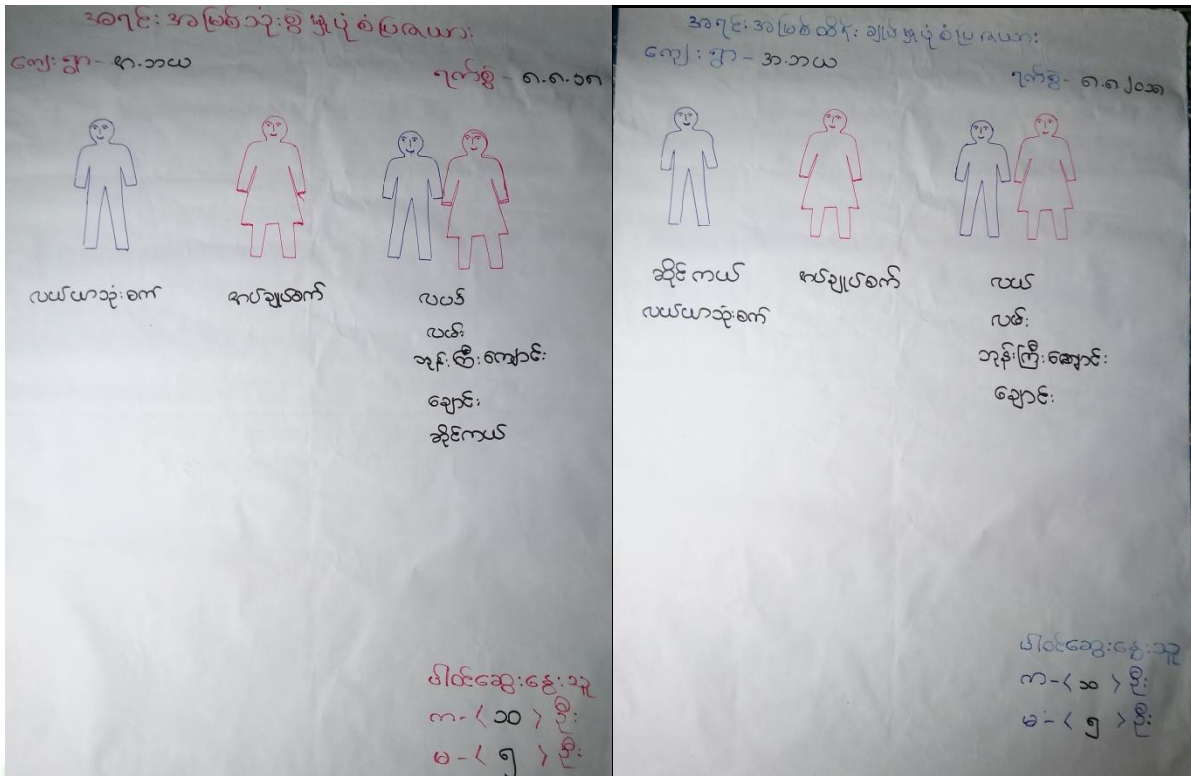 အရင်းအမြစ်သုံးစွဲမှုပုံစံပြဇယား
ကျေးရွာ - အာ.ဘယ
ရက်စွဲ - ၈.၈.၁၈
လယ်ယာသုံးစက်
အပ်ချုပ်စက်
လယ်
လမ်း
ဘုန်းကြီးကျောင်း
ချောင်း
ဆိုင်ကယ်
ပါဝင်ဆွေးနွေးသူ
က - < ၁၀ > ဦး
မ - < ၅ > ဦး
အရင်းအမြစ်ထိန်းချုပ်မှုပုံစံပြဇယား
ကျေးရွာ - အ.ဘယ
ရက်စွဲ - ၈.၈.၂၀၁၈
ဆိုင်ကယ်
လယ်ယာသုံးစက်
အပ်ချုပ်စက်
လယ်
လမ်း
ဘုန်းကြီးကျောင်း
ချောင်း
ပါဝင်ဆွေးနွေးသူ
က - < ၁၀ > ဦး
မ - < ၅ > ဦး